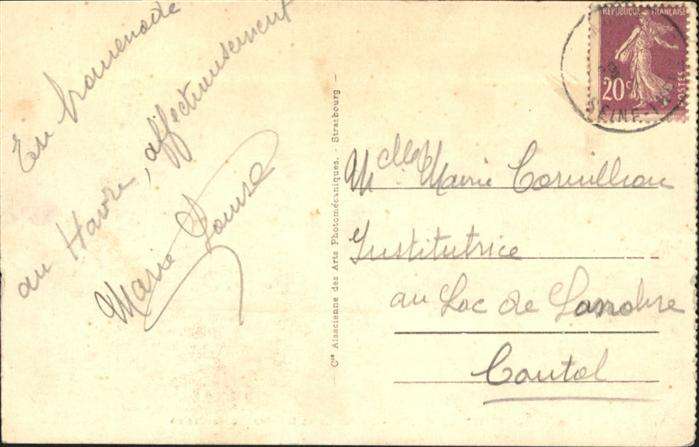 En promenade
au Havre, affectueusement
Marie Louise
Cie Alsacienne des Arts Photomécaniques. - Strasbourg -
RÉPUBLIQUE FRANÇAISE
20c
POSTES
SEINE
Melle Marie Cornillon
Institutrice
au Lac de Lanobre
Cantal